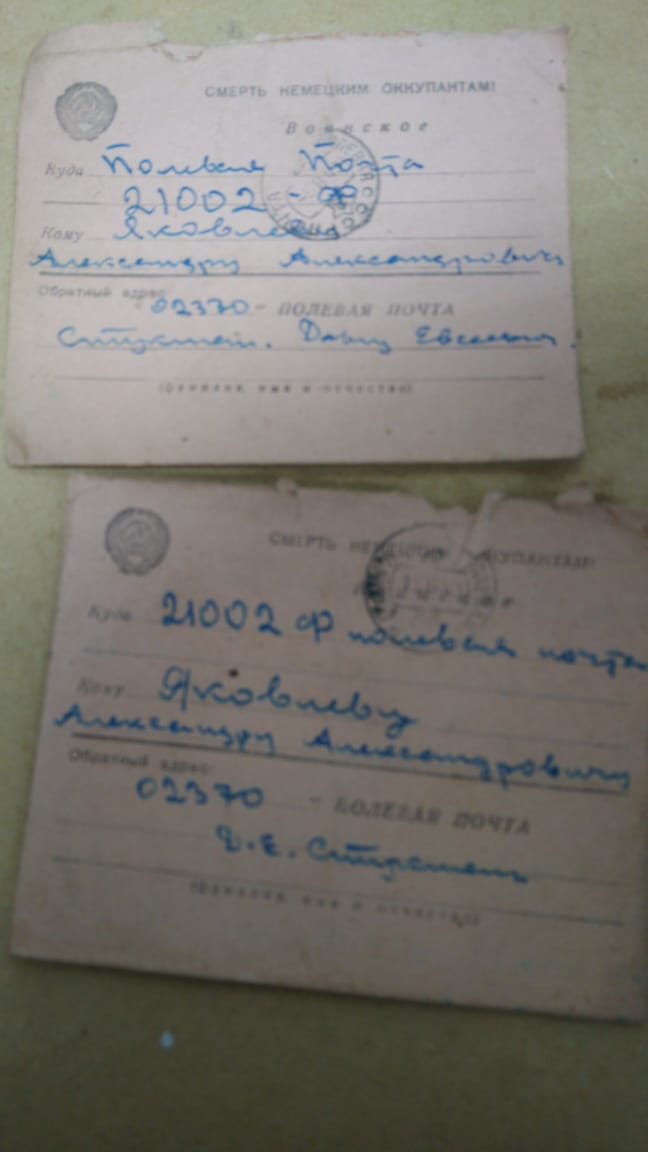 СМЕРТЬ НЕМЕЦКИМ ОККУПАНТАМ!
Воинское
Куда Полевая Почта
21002 - Ф
Кому Яковлеву
Александру Александровичу
Обратный адрес:
02370 - ПОЛЕВАЯ ПОЧТА
Давид
(фамилия, имя и отчество)
СМЕРТЬ НЕМЕЦКИМ ОККУПАНТАМ!
Воинское
Куда 21002 Ф полевая почта
Кому Яковлеву
Александру Александровичу
Обратный адрес:
02370 - ПОЛЕВАЯ ПОЧТА
Д. Е.
(фамилия, имя и отчество)